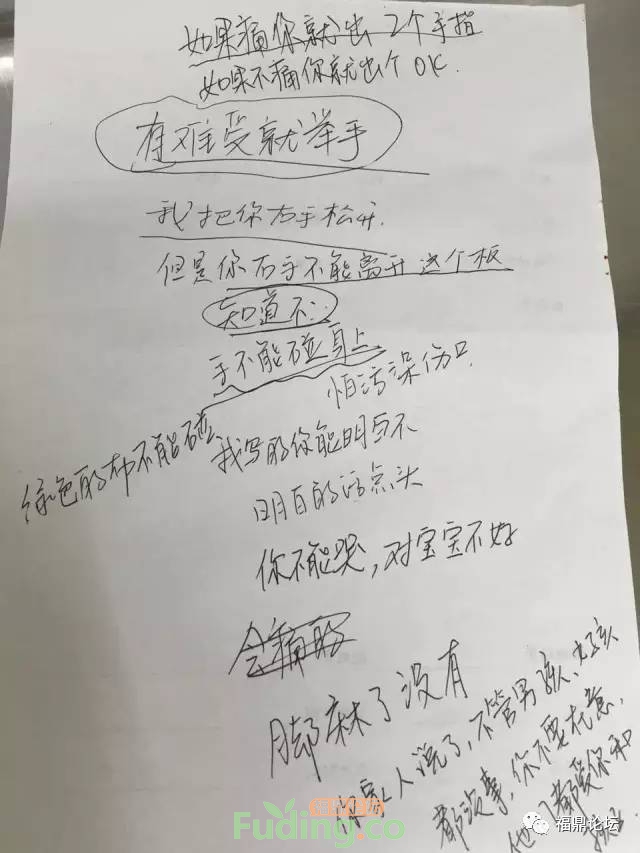 如果痛你就出2个手指
如果不痛你就出个OK.
有难受就举手
我把你右手松开.
但是你右手不能离开这个板
知道不:
手不能碰身上
怕污染伤口
绿色的布不能碰
我写的你能明白不
明白的话点头
你不能哭,对宝宝不好
会痛的
脚麻了没有
你家人说了,不管男孩、女孩
都没事,你不要在意,
他们都爱你和
Fuding.co
福鼎论坛